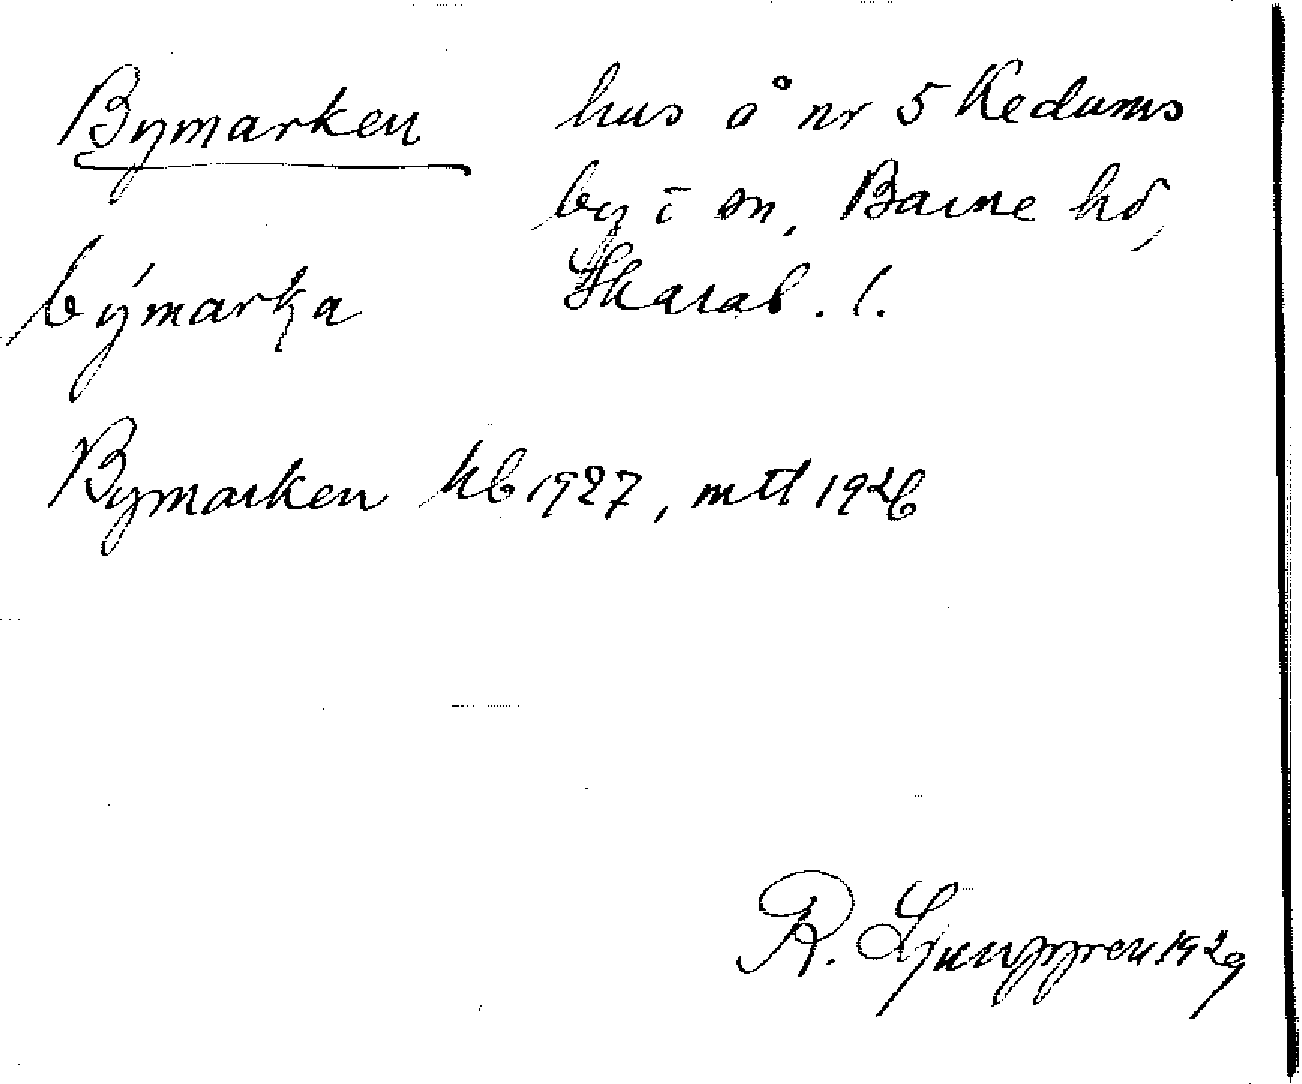 Bymarken hus å nr 5 Kedums
by i sn, Barne hd,
býmarka Skarab. l.
Bymarken kb 1927, mtl 1926
R. Ljunggren 1929